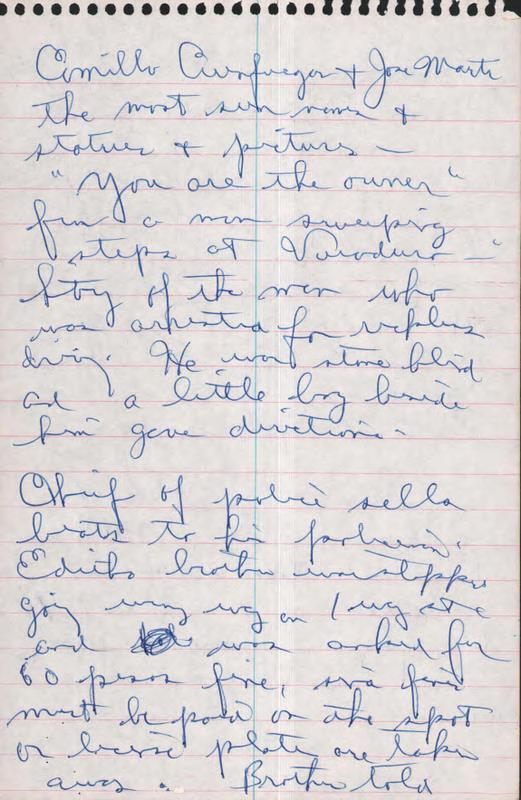 Camillo Cienfuegos + Jose Marti
the most seen names +
statues + pictures —
"You are the owner"
from a man sweeping
steps at Varadero —
Story of the man who
was arrested for reckless
driving. He was stone blind
and a little boy beside
him gave directions.
Chief of police sells
beats to his policemen.
Ediths brother was stopped
going wrong way on 1 way st
and was asked for
60 pesos fine, since fines
must be paid on the spot
or license plates are taken
away. Brother told